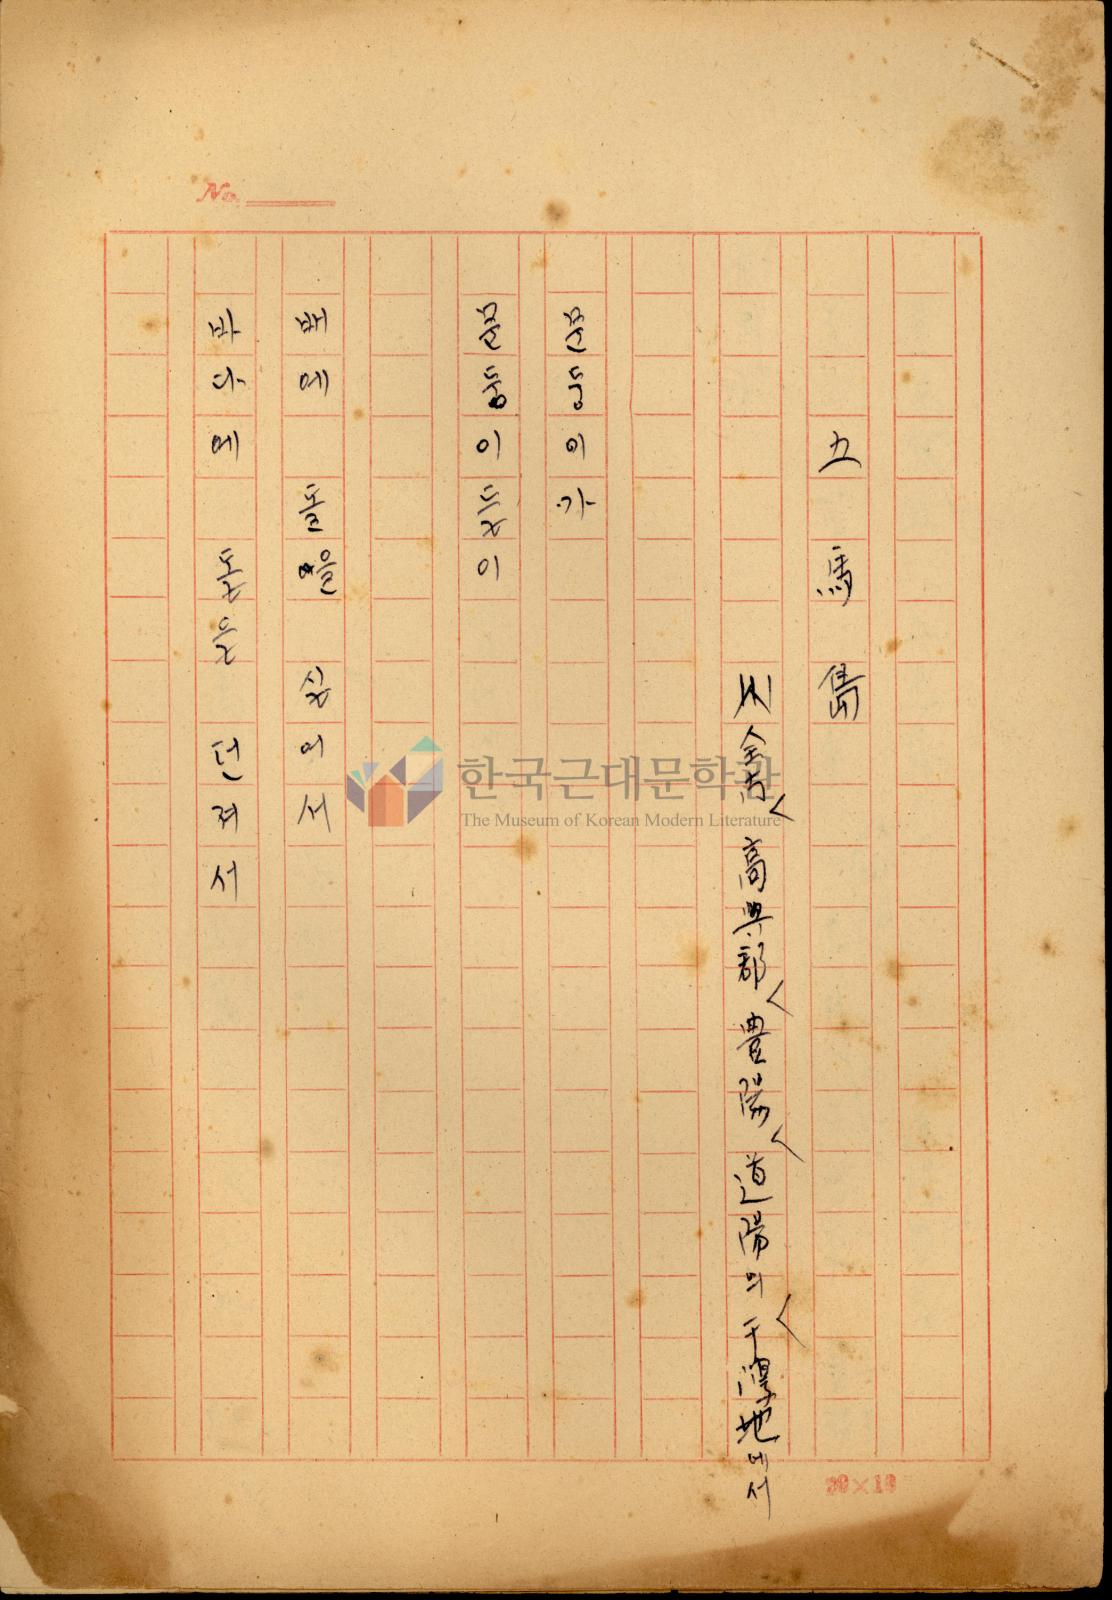 No.
五馬島
全南 高興郡 豊陽 道陽의 干潟地에서
문둥이가
문둥이들이
배에 돌을 실어서
바다에 돌을 던져서
20×10
한국근대문학관
The Museum of Korean Modern Literature